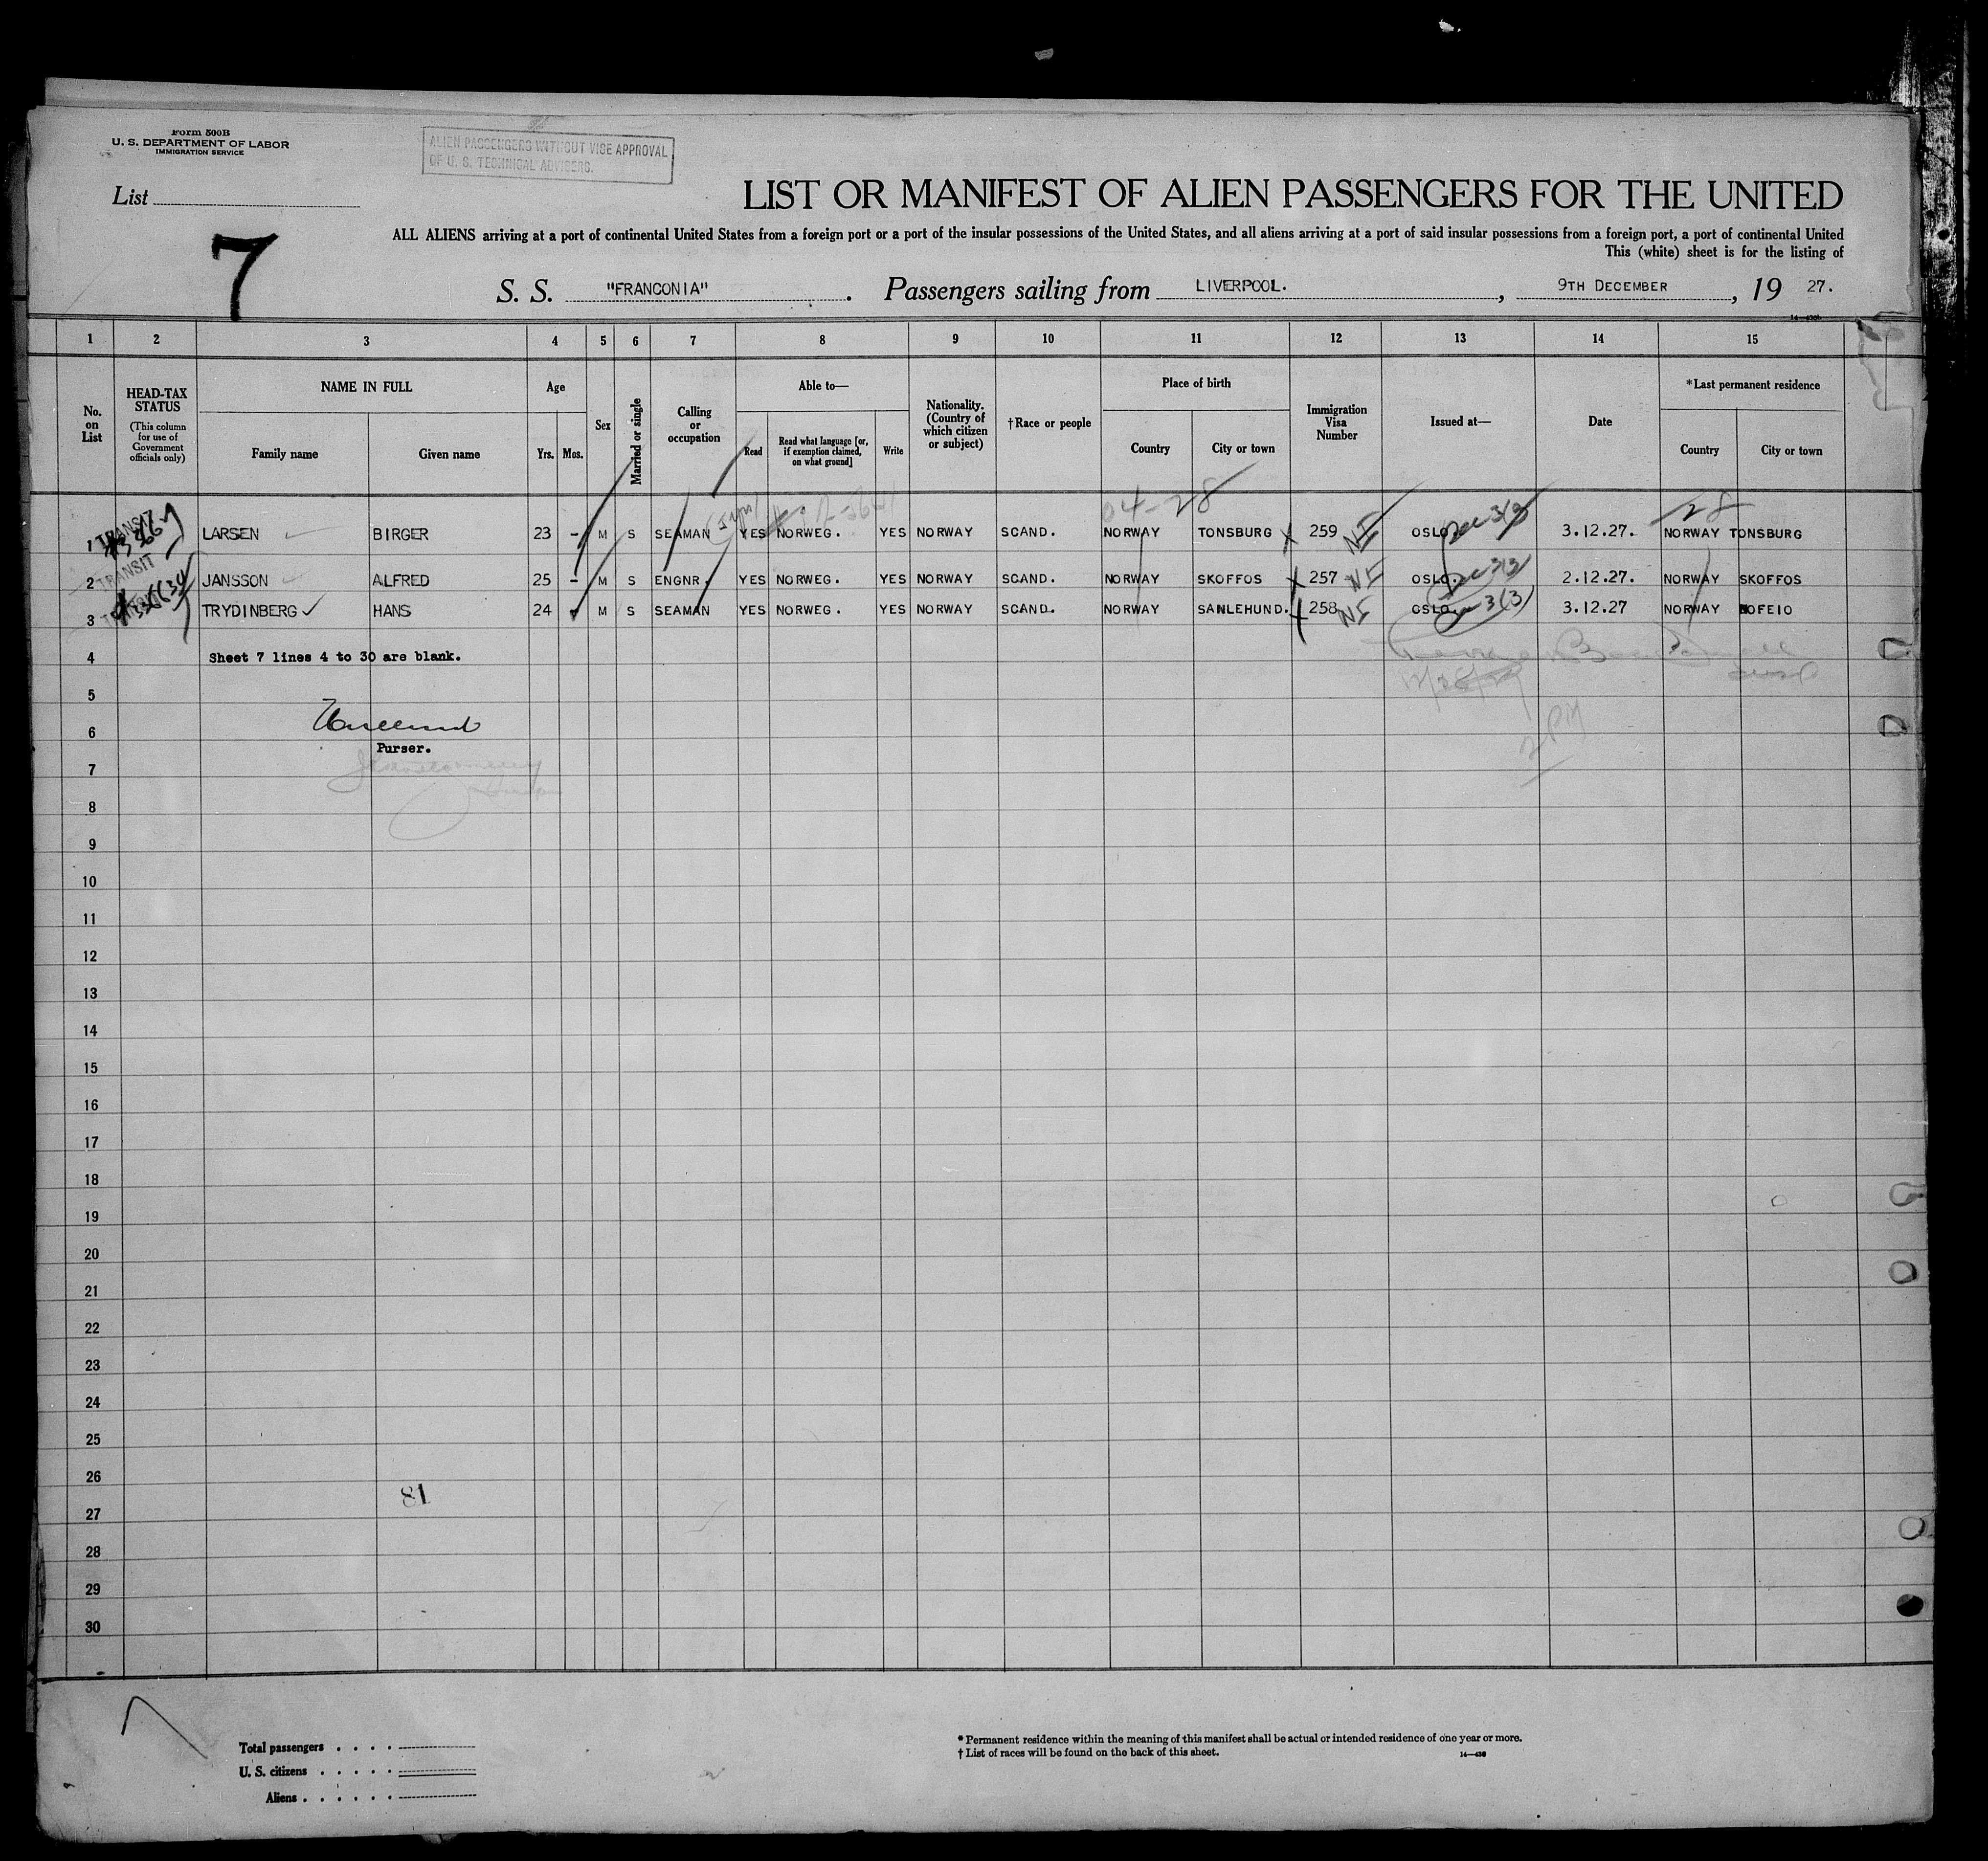 Form 500B
U. S. DEPARTMENT OF LABOR
IMMIGRATION SERVICE
ALIEN PASSENGERS WITHOUT VISE APPROVAL
OF U. S. TECHNICAL ADVISERS.
List
7
LIST OR MANIFEST OF ALIEN PASSENGERS FOR THE UNITED
ALL ALIENS arriving at a port of continental United States from a foreign port or a port of the insular possessions of the United States, and all aliens arriving at a port of said insular possessions from a foreign port, a port of continental United
This (white) sheet is for the listing of
S. S. "FRANCONIA" . Passengers sailing from LIVERPOOL. , 9TH DECEMBER , 19 27.
1 2 3 4 5 6 7 8 9 10 11 12 13 14 15
No. on List
HEAD-TAX STATUS
(This column for use of Government officials only)
NAME IN FULL
Family name Given name
Age
Yrs. Mos.
Sex
Married or single
Calling or occupation
Able to—
Read
Read what language [or, if exemption claimed, on what ground]
Write
Nationality. (Country of which citizen or subject)
†Race or people
Place of birth
Country City or town
Immigration Visa Number
Issued at—
Date
*Last permanent residence
Country City or town
04-28 28
1 TRANSIT LARSEN BIRGER 23 - M S SEAMAN YES NORWEG. YES NORWAY SCAND. NORWAY TONSBURG 259 OSLO 3.12.27. NORWAY TONSBURG
2 TRANSIT JANSSON ALFRED 25 - M S ENGNR. YES NORWEG. YES NORWAY SCAND. NORWAY SKOFFOS 257 OSLO. 2.12.27. NORWAY SKOFFOS
3 TRYDINBERG HANS 24 M S SEAMAN YES NORWEG. YES NORWAY SCAND. NORWAY SANLEHUND. 258 OSLO 3.12.27 NORWAY HOFEIO
4 Sheet 7 lines 4 to 30 are blank.
5
6
Purser.
2 PM
7
8
9
10
11
12
13
14
15
16
17
18
19
20
21
22
23
24
25
26
81
27
28
29
30
Total passengers
U. S. citizens
Aliens
* Permanent residence within the meaning of this manifest shall be actual or intended residence of one year or more.
† List of races will be found on the back of this sheet.
14—430